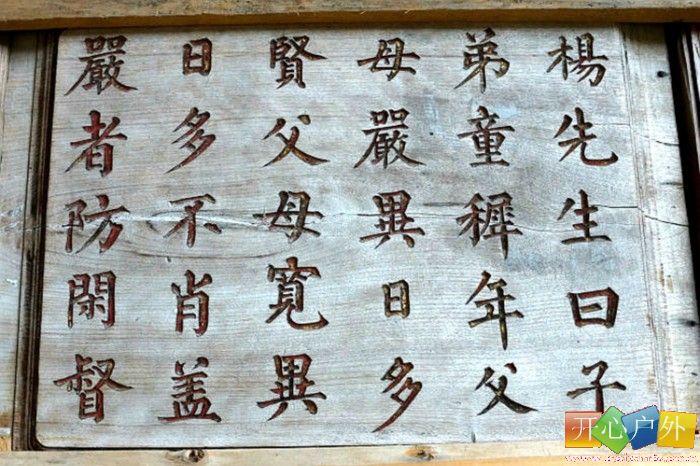 楊先生曰子
弟童穉年父
母嚴異日多
賢父母寬異
日多不肖盖
嚴者防閑督
开心户外